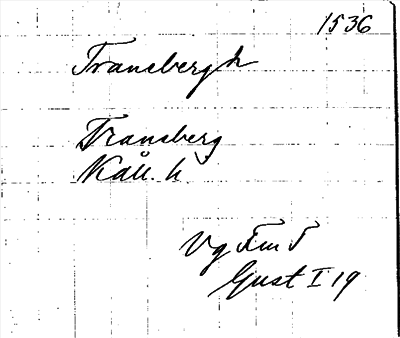 1536
Transberg h
Transberg
Kåll. h
Vg Fm T
Gust I 19